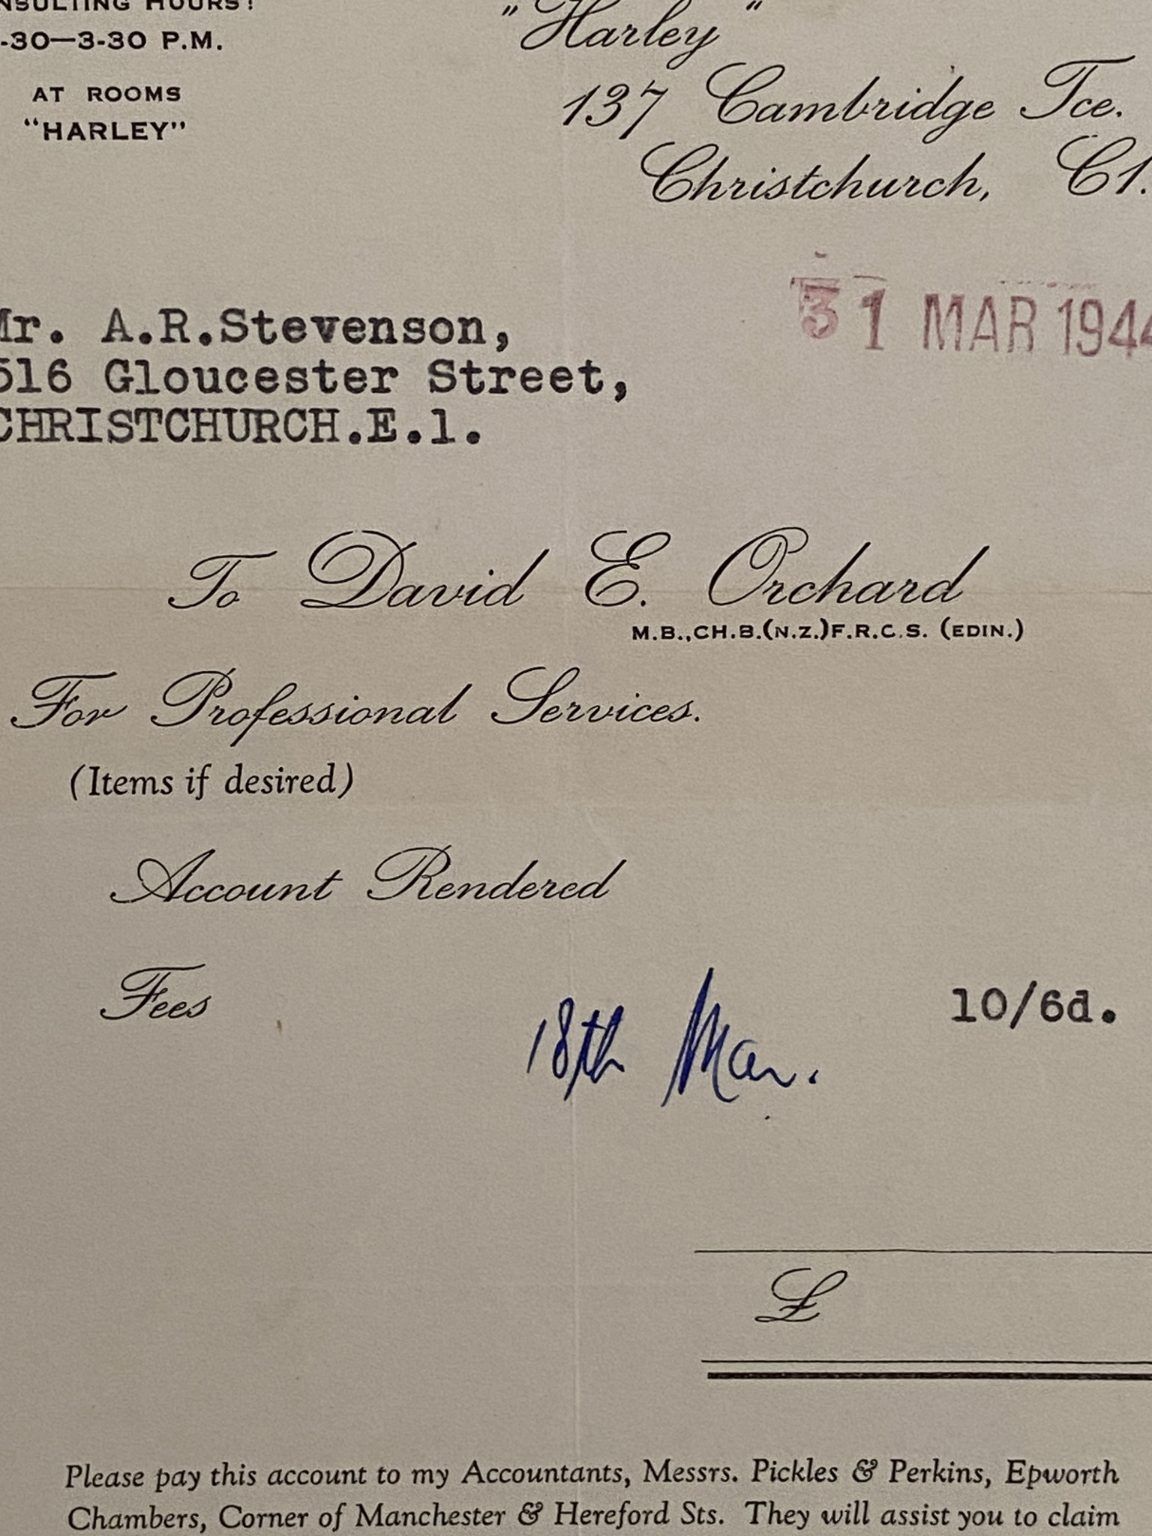 CONSULTING HOURS:
-30—3-30 P.M.
AT ROOMS
"HARLEY"
"Harley"
137 Cambridge Tce.
Christchurch, C1.
31 MAR 1944
Mr. A.R.Stevenson,
516 Gloucester Street,
CHRISTCHURCH.E.1.
To David E. Orchard
M.B.,CH.B.(N.Z.)F.R.C.S. (EDIN.)
For Professional Services.
(Items if desired)
Account Rendered
Fees 18th Mar. 10/6d.
£
Please pay this account to my Accountants, Messrs. Pickles & Perkins, Epworth
Chambers, Corner of Manchester & Hereford Sts. They will assist you to claim